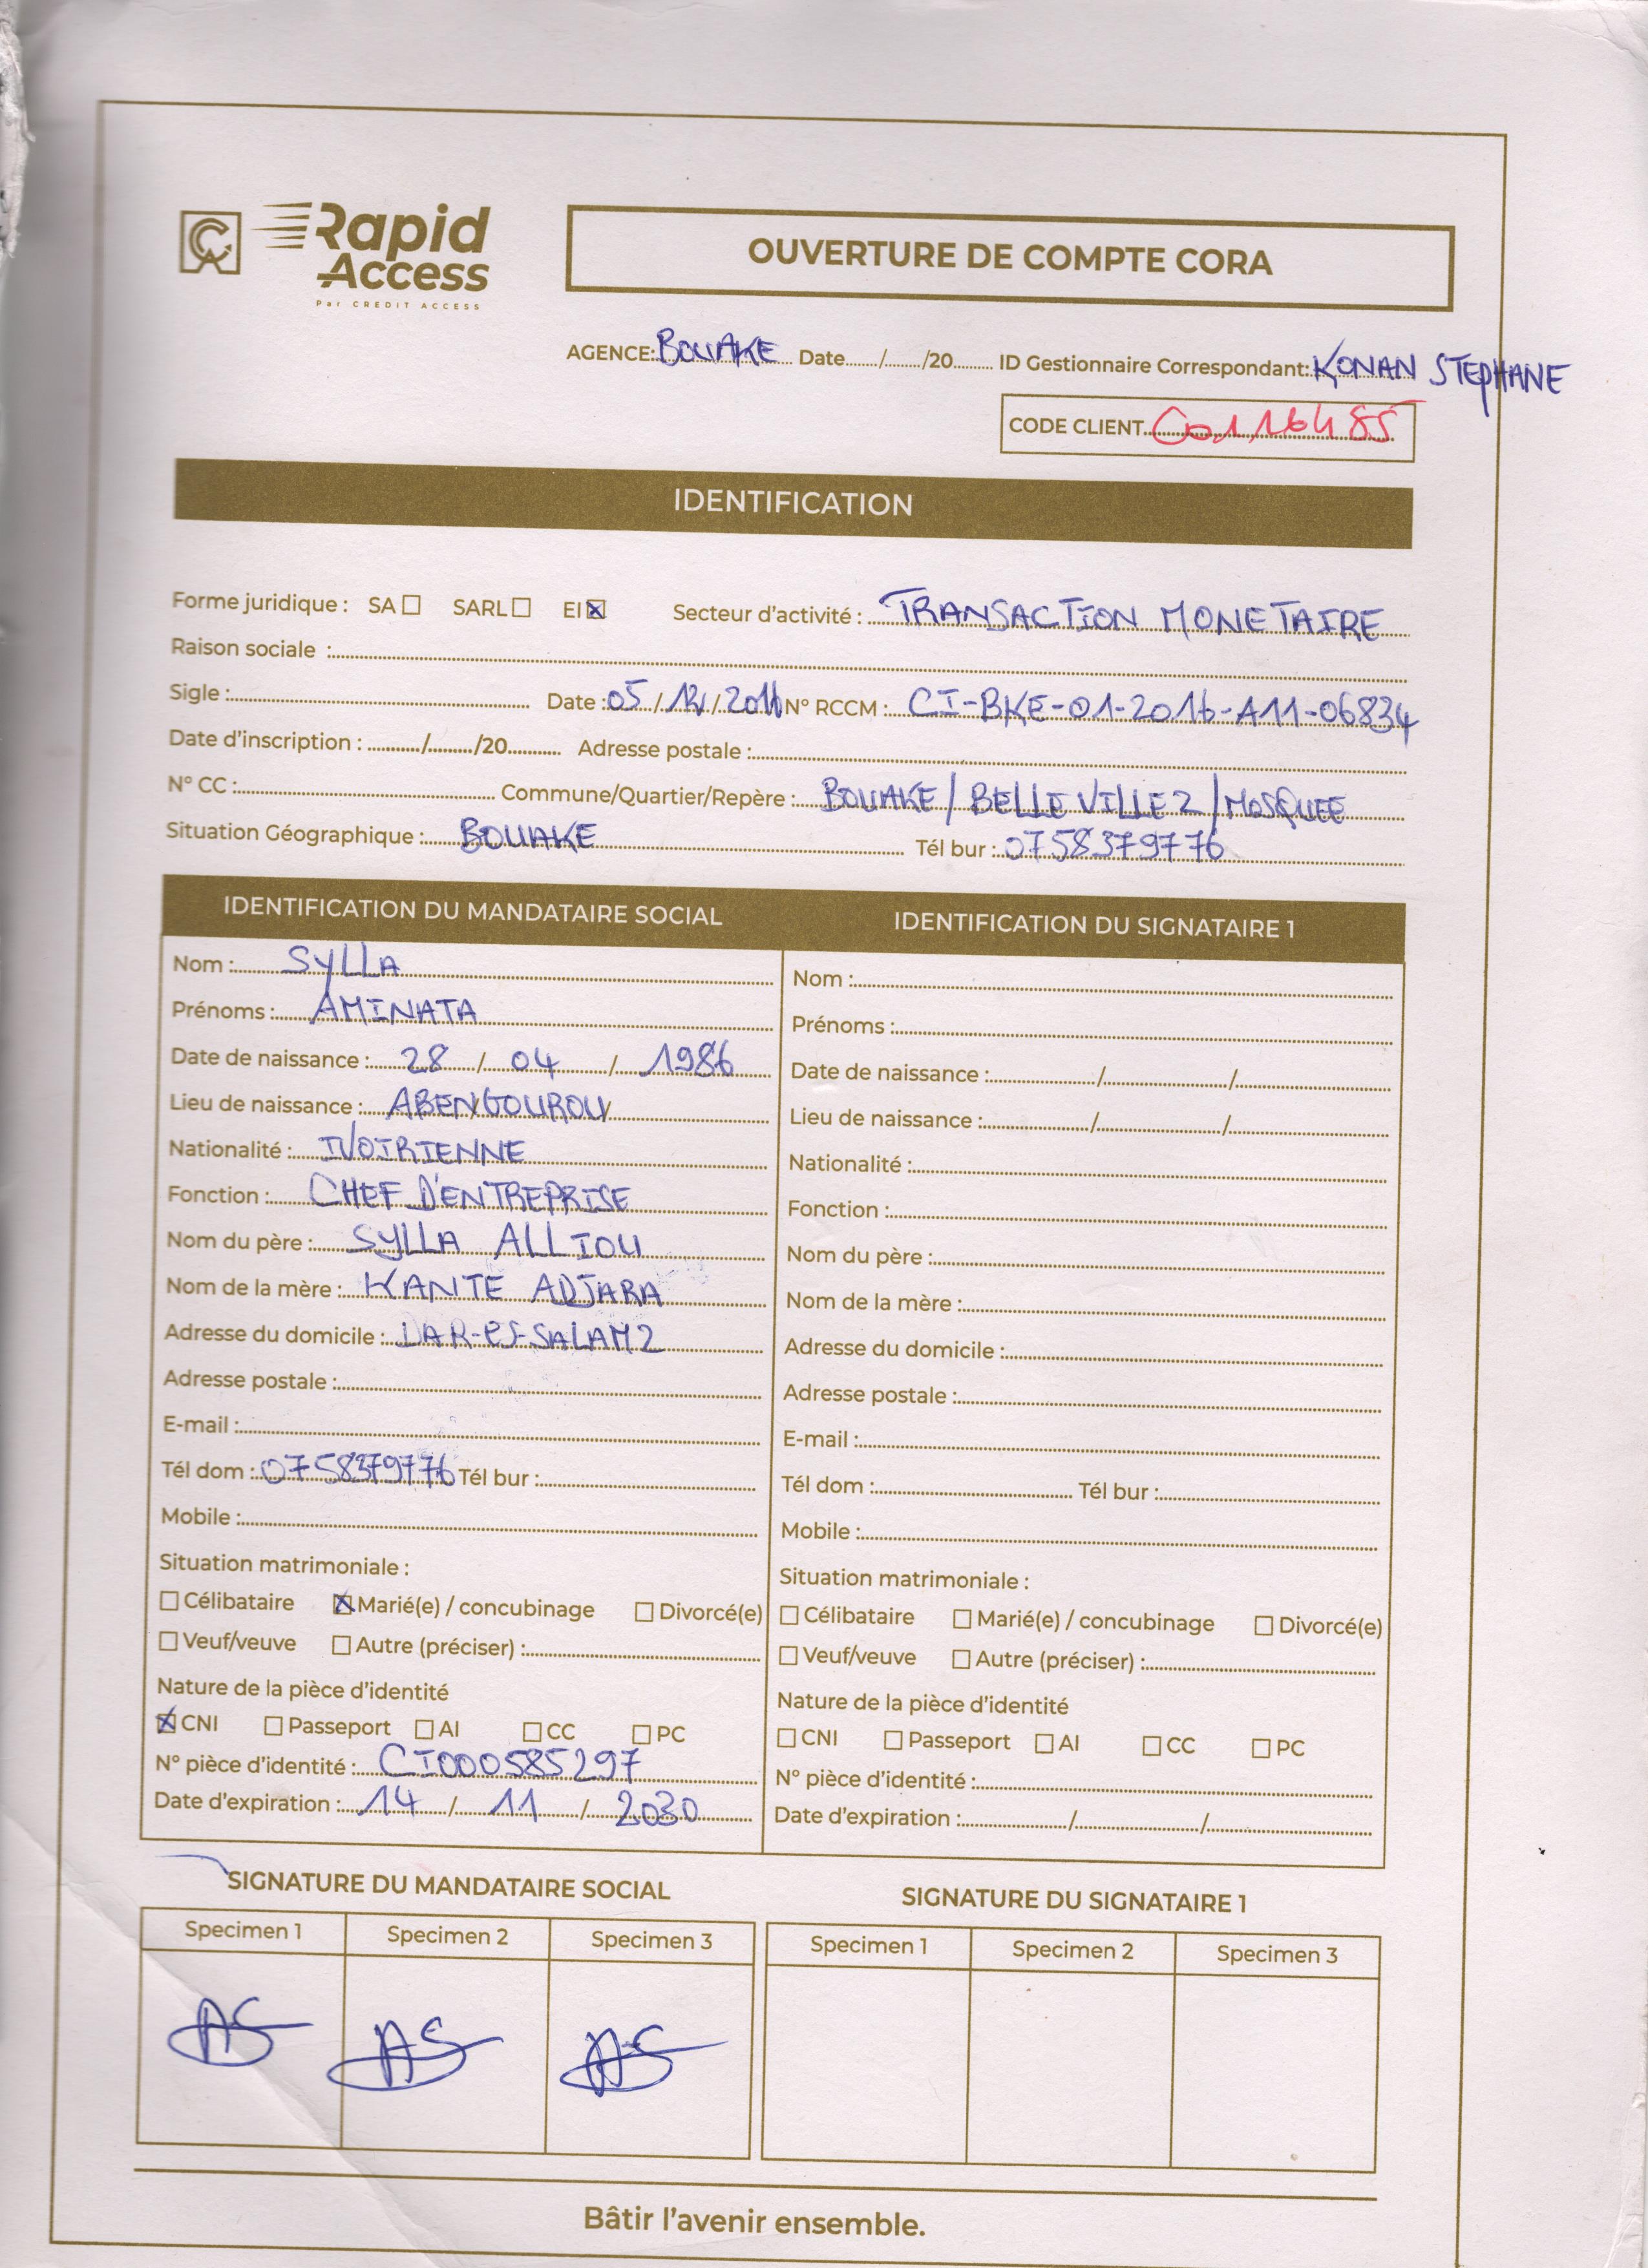 CA Rapid Access
Par CREDIT ACCESS
OUVERTURE DE COMPTE CORA
AGENCE: BOUAKE Date......./......./20......... ID Gestionnaire Correspondant: KONAN STEPHANE
CODE CLIENT C0116485
IDENTIFICATION
Forme juridique : SA ☐ SARL ☐ EI ☒ Secteur d'activité : TRANSACTION MONETAIRE
Raison sociale :
Sigle : Date : 05 / 12 / 2016 N° RCCM : CI-BKE-01-2016-A11-06834
Date d'inscription : ........../........./20........... Adresse postale :
N° CC : Commune/Quartier/Repère : BOUAKE / BELLEVILLE 2 / MOSQUEE
Situation Géographique : BOUAKE Tél bur : 0758379776
IDENTIFICATION DU MANDATAIRE SOCIAL
Nom : SYLLA
Prénoms : AMINATA
Date de naissance : 28 / 04 / 1986
Lieu de naissance : ABENGOUROU
Nationalité : IVOIRIENNE
Fonction : CHEF D'ENTREPRISE
Nom du père : SYLLA ALLIOU
Nom de la mère : KANTE ADJARA
Adresse du domicile : DAR-ES-SALAM 2
Adresse postale :
E-mail :
Tél dom : 0758379776 Tél bur :
Mobile :
Situation matrimoniale :
☐ Célibataire ☒ Marié(e) / concubinage ☐ Divorcé(e)
☐ Veuf/veuve ☐ Autre (préciser) :
Nature de la pièce d'identité
☒ CNI ☐ Passeport ☐ AI ☐ CC ☐ PC
N° pièce d'identité : CI000585297
Date d'expiration : 14 / 11 / 2030
IDENTIFICATION DU SIGNATAIRE 1
Nom :
Prénoms :
Date de naissance : / /
Lieu de naissance : / /
Nationalité :
Fonction :
Nom du père :
Nom de la mère :
Adresse du domicile :
Adresse postale :
E-mail :
Tél dom : Tél bur :
Mobile :
Situation matrimoniale :
☐ Célibataire ☐ Marié(e) / concubinage ☐ Divorcé(e)
☐ Veuf/veuve ☐ Autre (préciser) :
Nature de la pièce d'identité
☐ CNI ☐ Passeport ☐ AI ☐ CC ☐ PC
N° pièce d'identité :
Date d'expiration : / /
SIGNATURE DU MANDATAIRE SOCIAL
Specimen 1 Specimen 2 Specimen 3
AS AS AS
SIGNATURE DU SIGNATAIRE 1
Specimen 1 Specimen 2 Specimen 3
Bâtir l'avenir ensemble.